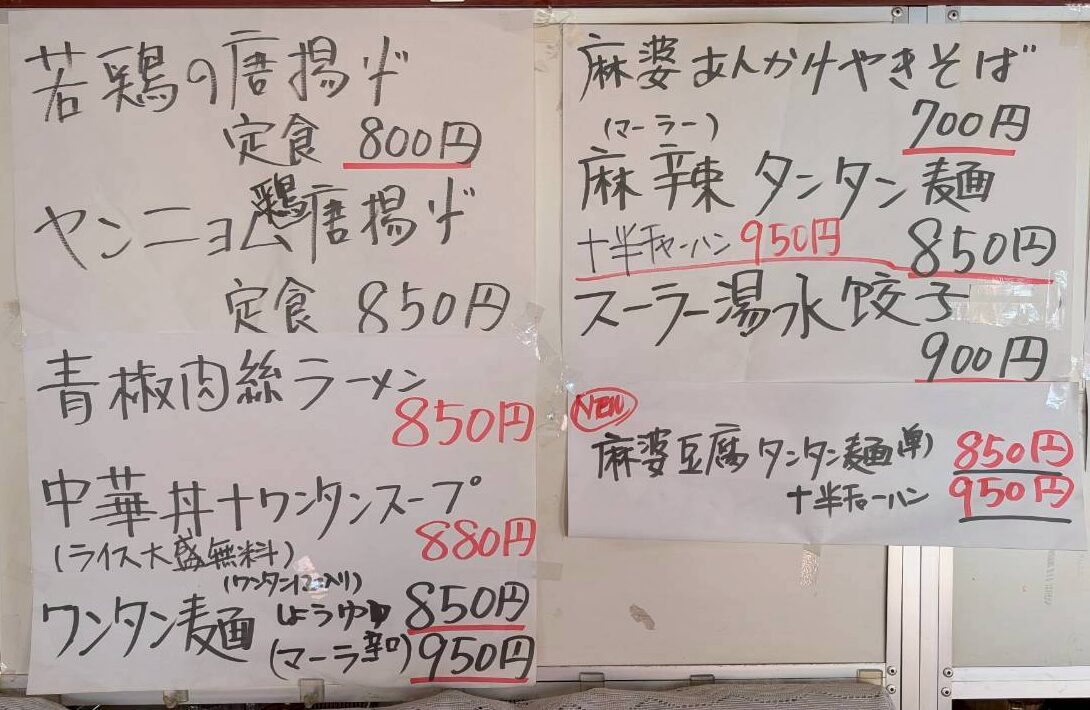 若鶏の唐揚げ
定食 800円
ヤンニョム鶏唐揚げ
定食 850円
青椒肉絲ラーメン
850円
中華丼+ワンタンスープ
(ライス大盛無料) 880円
(ワンタン12コ入り)
ワンタン麺 しょうゆ 850円
(マーラ辛口) 950円
麻婆あんかけやきそば
700円
(マーラー)
麻辣タンタン麺
+半チャーハン 950円 850円
スーラー湯水餃子
900円
NEW
麻婆豆腐タンタン麺(単) 850円
+半チャーハン 950円